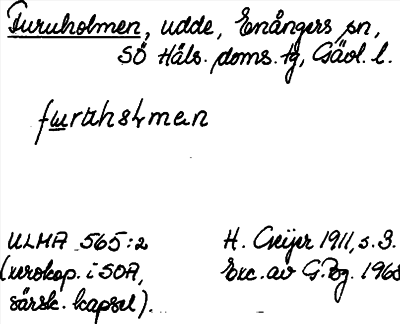 Furuholmen, udde, Enångers sn,
SÖ Häls. doms. tg, Gävl. l.
furuhoɫmen
ULMA 565:2 H. Geijer 1911, s. 3.
(xerokop. i SOA, Exc. av G. Bg. 1968
särsk. kapsel).